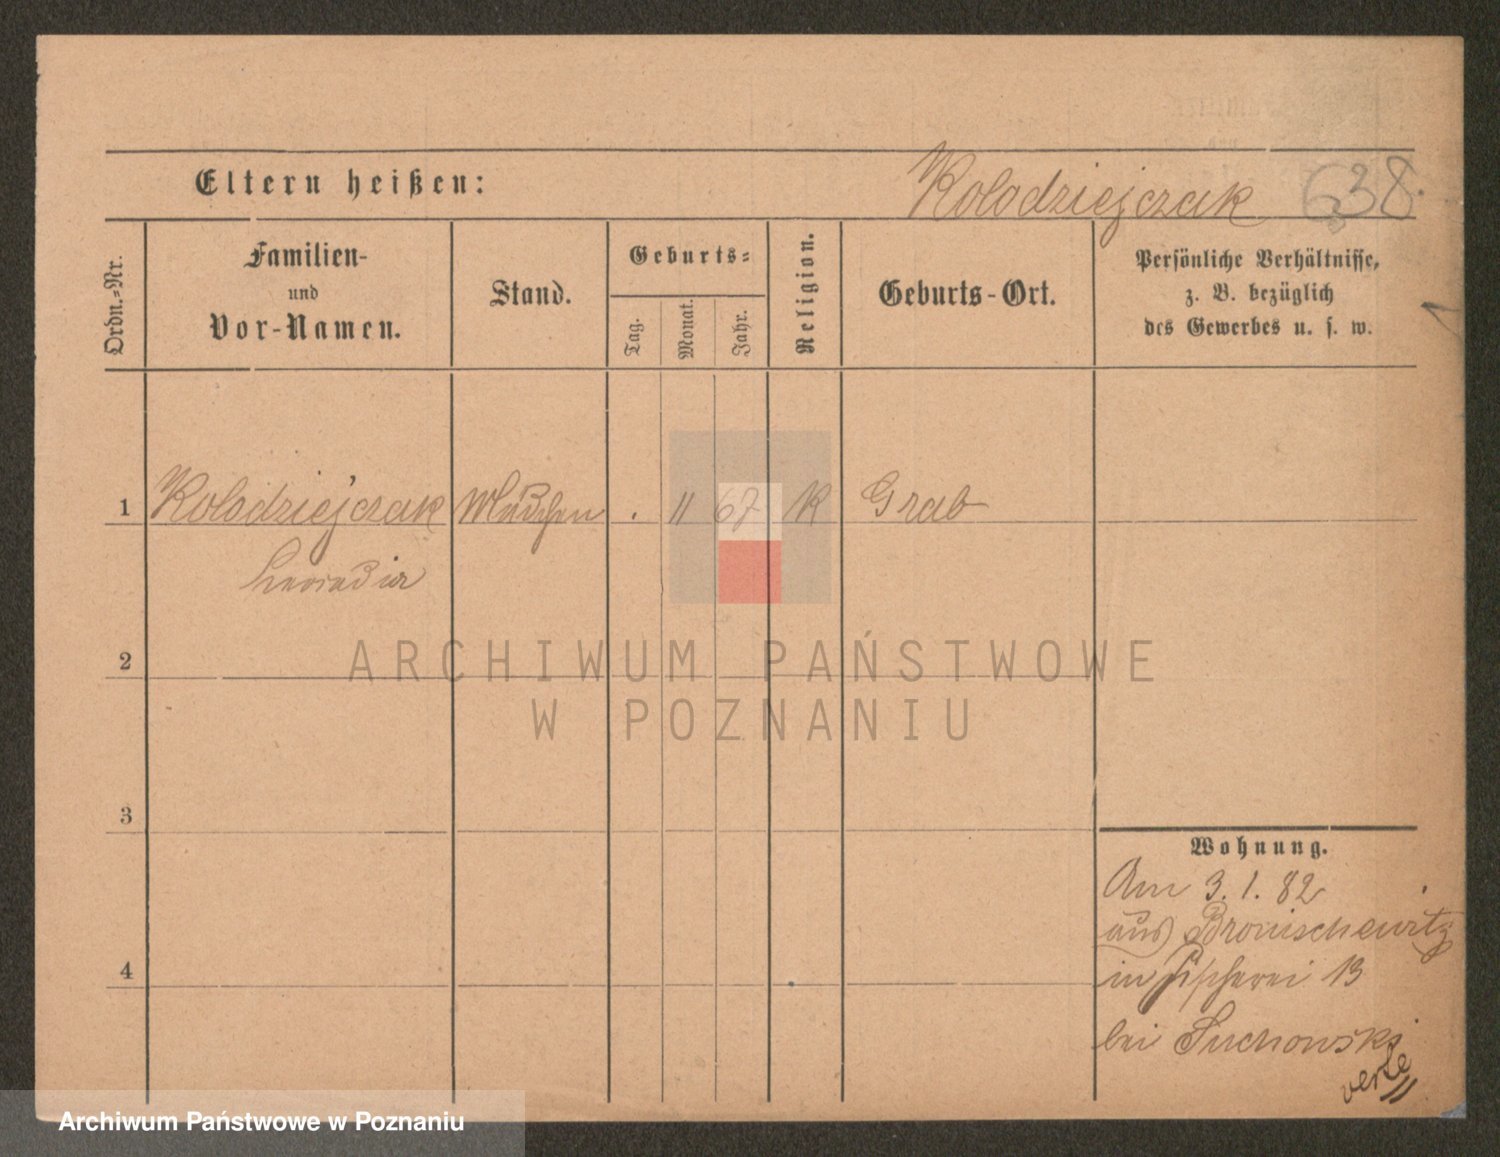 Eltern heißen:
Kolodziejczak 638.
Ordn.-Nr.
Familien-
und
Vor-Namen.
Stand.
Geburts-
Tag.
Monat.
Jahr.
Religion.
Geburts-Ort.
Persönliche Verhältnisse,
z. B. bezüglich
des Gewerbes u. s. w.
1 Kolodziejczak Mädchen . 11 67 K Grab
2
3
4
Wohnung.
Am 3. 1. 82
aus Bronischewitz
in Fischerei 13
bei Suchowski
verte
ARCHIWUM PAŃSTWOWE
W POZNANIU
Archiwum Państwowe w Poznaniu